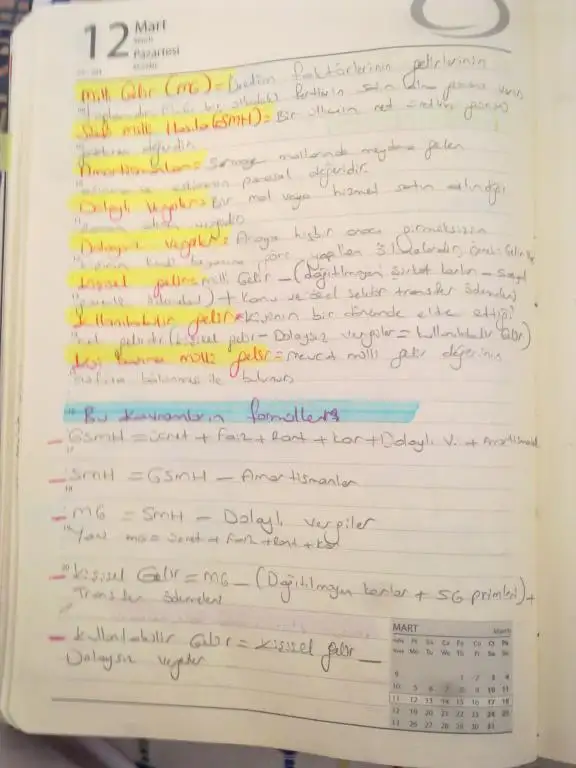 12 Mart
Pazartesi
Milli Gelir (MG) = Üretim faktörlerinin gelirlerinin
toplamıdır. bir ülkedeki fertlerin satın alma gücünü veren
Safi Milli Hasıla (SMH) = Bir ülkenin net üretim gücünü
değeridir.
Amortismanlar = Sermaye mallarında meydana gelen
eskimenin parasal değeridir.
Dolaylı Vergiler = Bir mal veya hizmet satın alındığı
zaman alınan vergidir
Dolaysız Vergiler = Araya hiçbir aracı girmeksizin
göre yapılan
Kişisel gelir = milli Gelir - (dağıtılmayan şirket karları - sosyal
güvenlik ödemeleri) + Kamu ve özel sektör transfer ödemeleri
Kullanılabilir gelir = Kişinin bir dönemde elde ettiği
gelirdir (Kişisel gelir - Dolaysız vergiler = kullanılabilir Gelir)
Kişi başına milli gelir = mevcut milli gelir değerinin
nüfusa bölünmesi ile bulunur
Bu kavramların formülleri
GSMH = ücret + Faiz + Rant + kar + Dolaylı V. + Amortisman
SMH = GSMH - Amortismanlar
MG = SMH - Dolaylı vergiler
Yani MG = ücret + Faiz + Rant + Kar
Kişisel Gelir = MG - (Dağıtılmayan karlar + SG primleri) +
Transfer ödemeleri
Kullanılabilir Gelir = kişisel gelir -
Dolaysız vergiler
MART